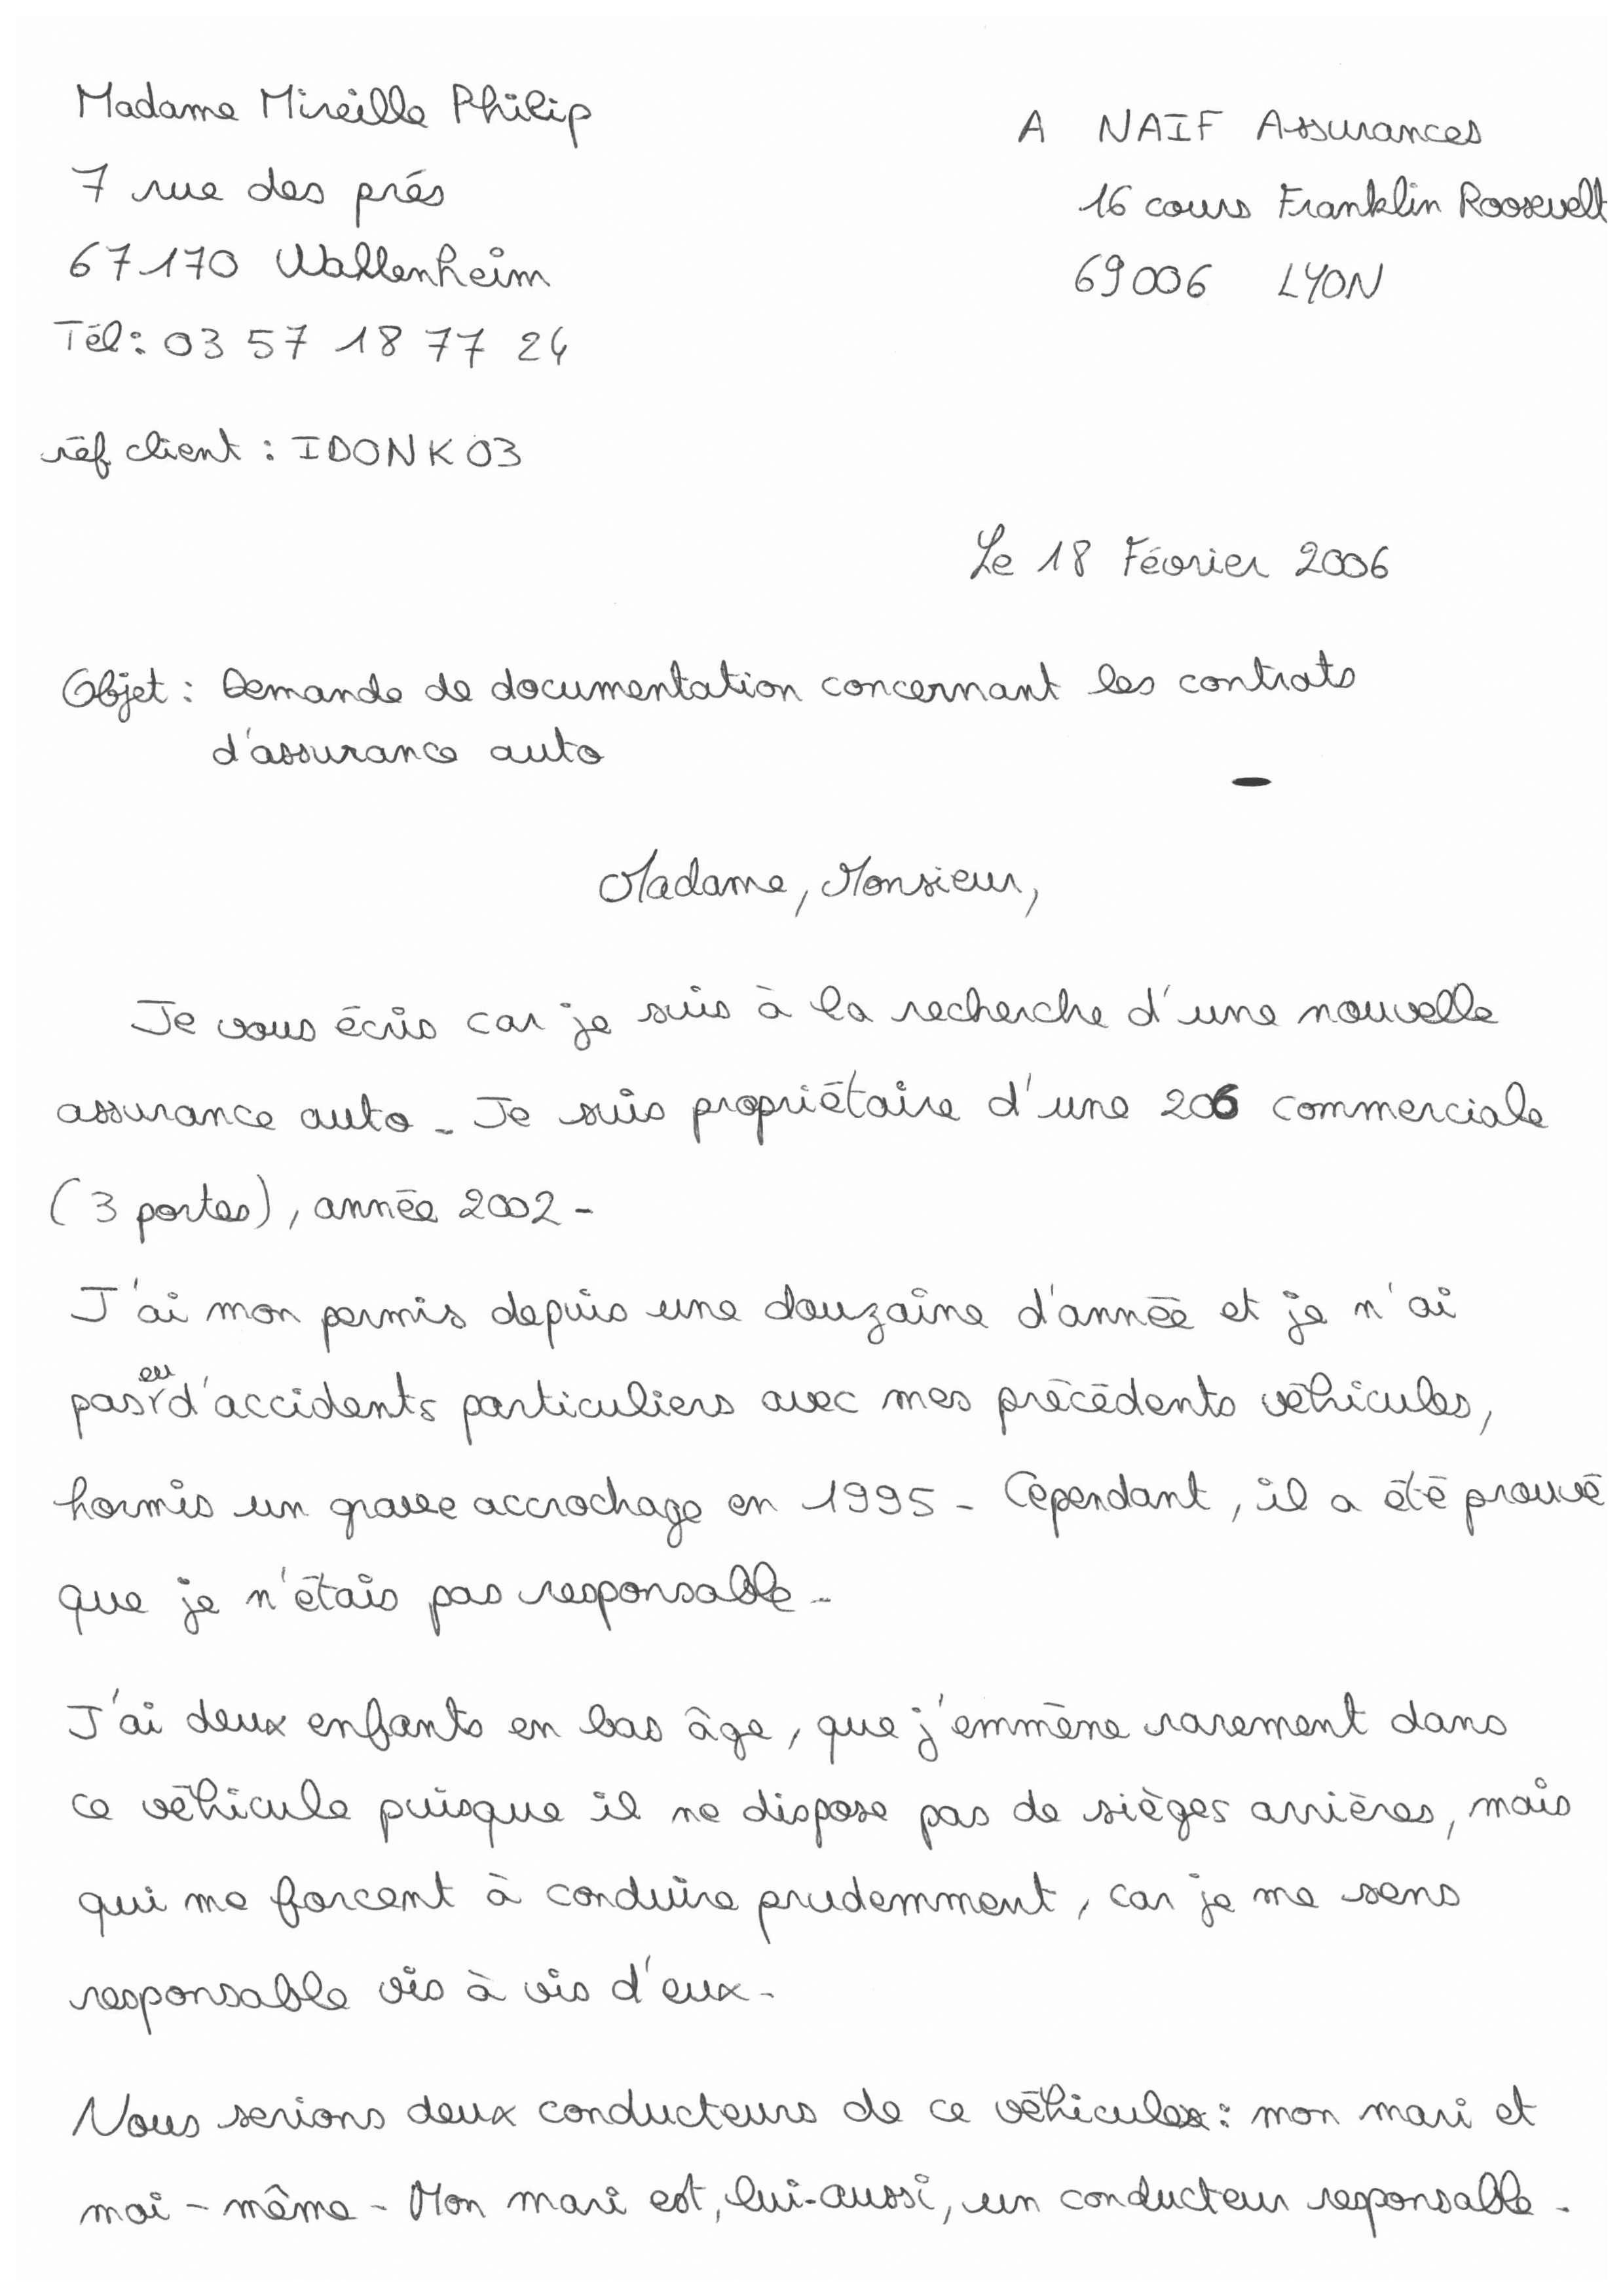 Madame Mireille Philip
7 rue des prés
67170 Wallenheim
Tél: 03 57 18 77 24
réf client : IDONK03
A NAIF Assurances
16 cours Franklin Roosevelt
69006 LYON
Le 18 Février 2006
Objet : Demande de documentation concernant les contrats
d'assurance auto
Madame, Monsieur,
Je vous écris car je suis à la recherche d'une nouvelle
assurance auto. Je suis propriétaire d'une 206 commerciale
(3 portes), année 2002.
J'ai mon permis depuis une douzaine d'année et je n'ai
pas eu d'accidents particuliers avec mes précédents véhicules,
hormis un grave accrochage en 1995. Cependant, il a été prouvé
que je n'étais pas responsable.
J'ai deux enfants en bas âge, que j'emmène rarement dans
ce véhicule puisque il ne dispose pas de sièges arrières, mais
qui me forcent à conduire prudemment, car je me sens
responsable vis à vis d'eux.
Nous serions deux conducteurs de ce véhicule : mon mari et
moi-même. Mon mari est, lui-aussi, un conducteur responsable.